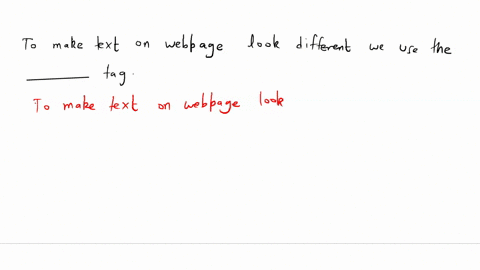 To make text on webpage look different we use the
______ tag.
To make text on webpage look